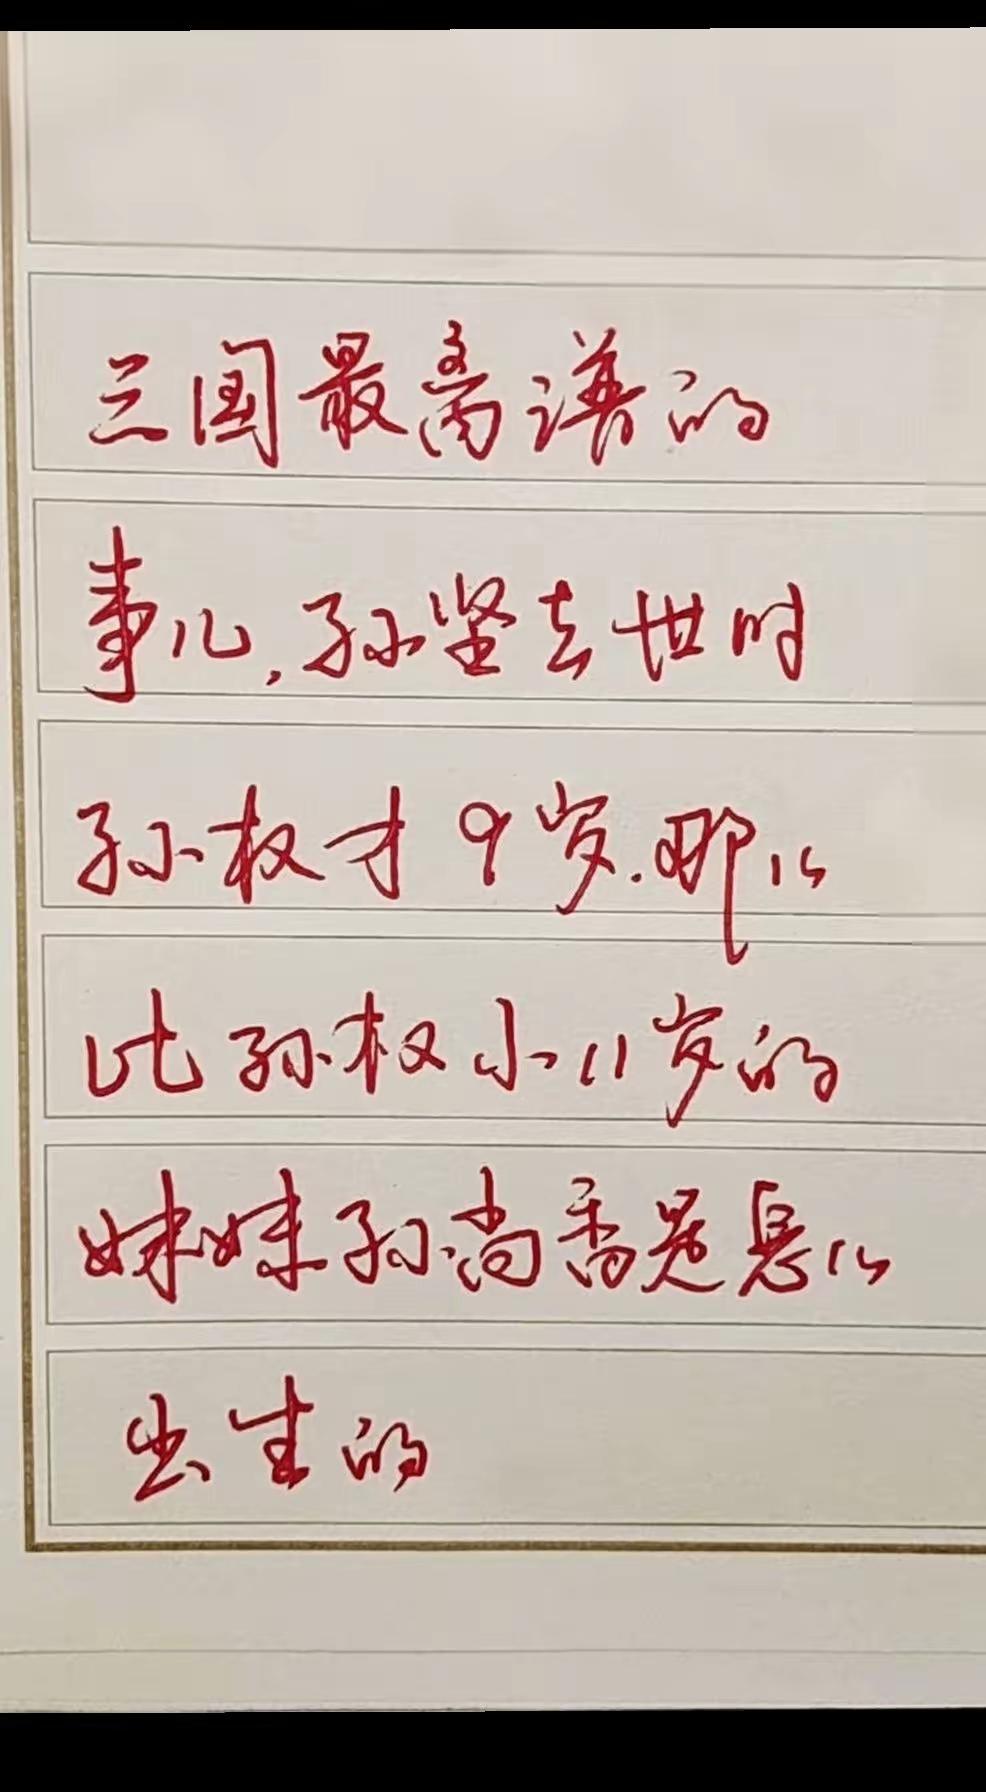 三国最离谱的
事儿,孙坚去世时
孙权才9岁.那么
比孙权小11岁的
妹妹孙尚香是怎么
出生的